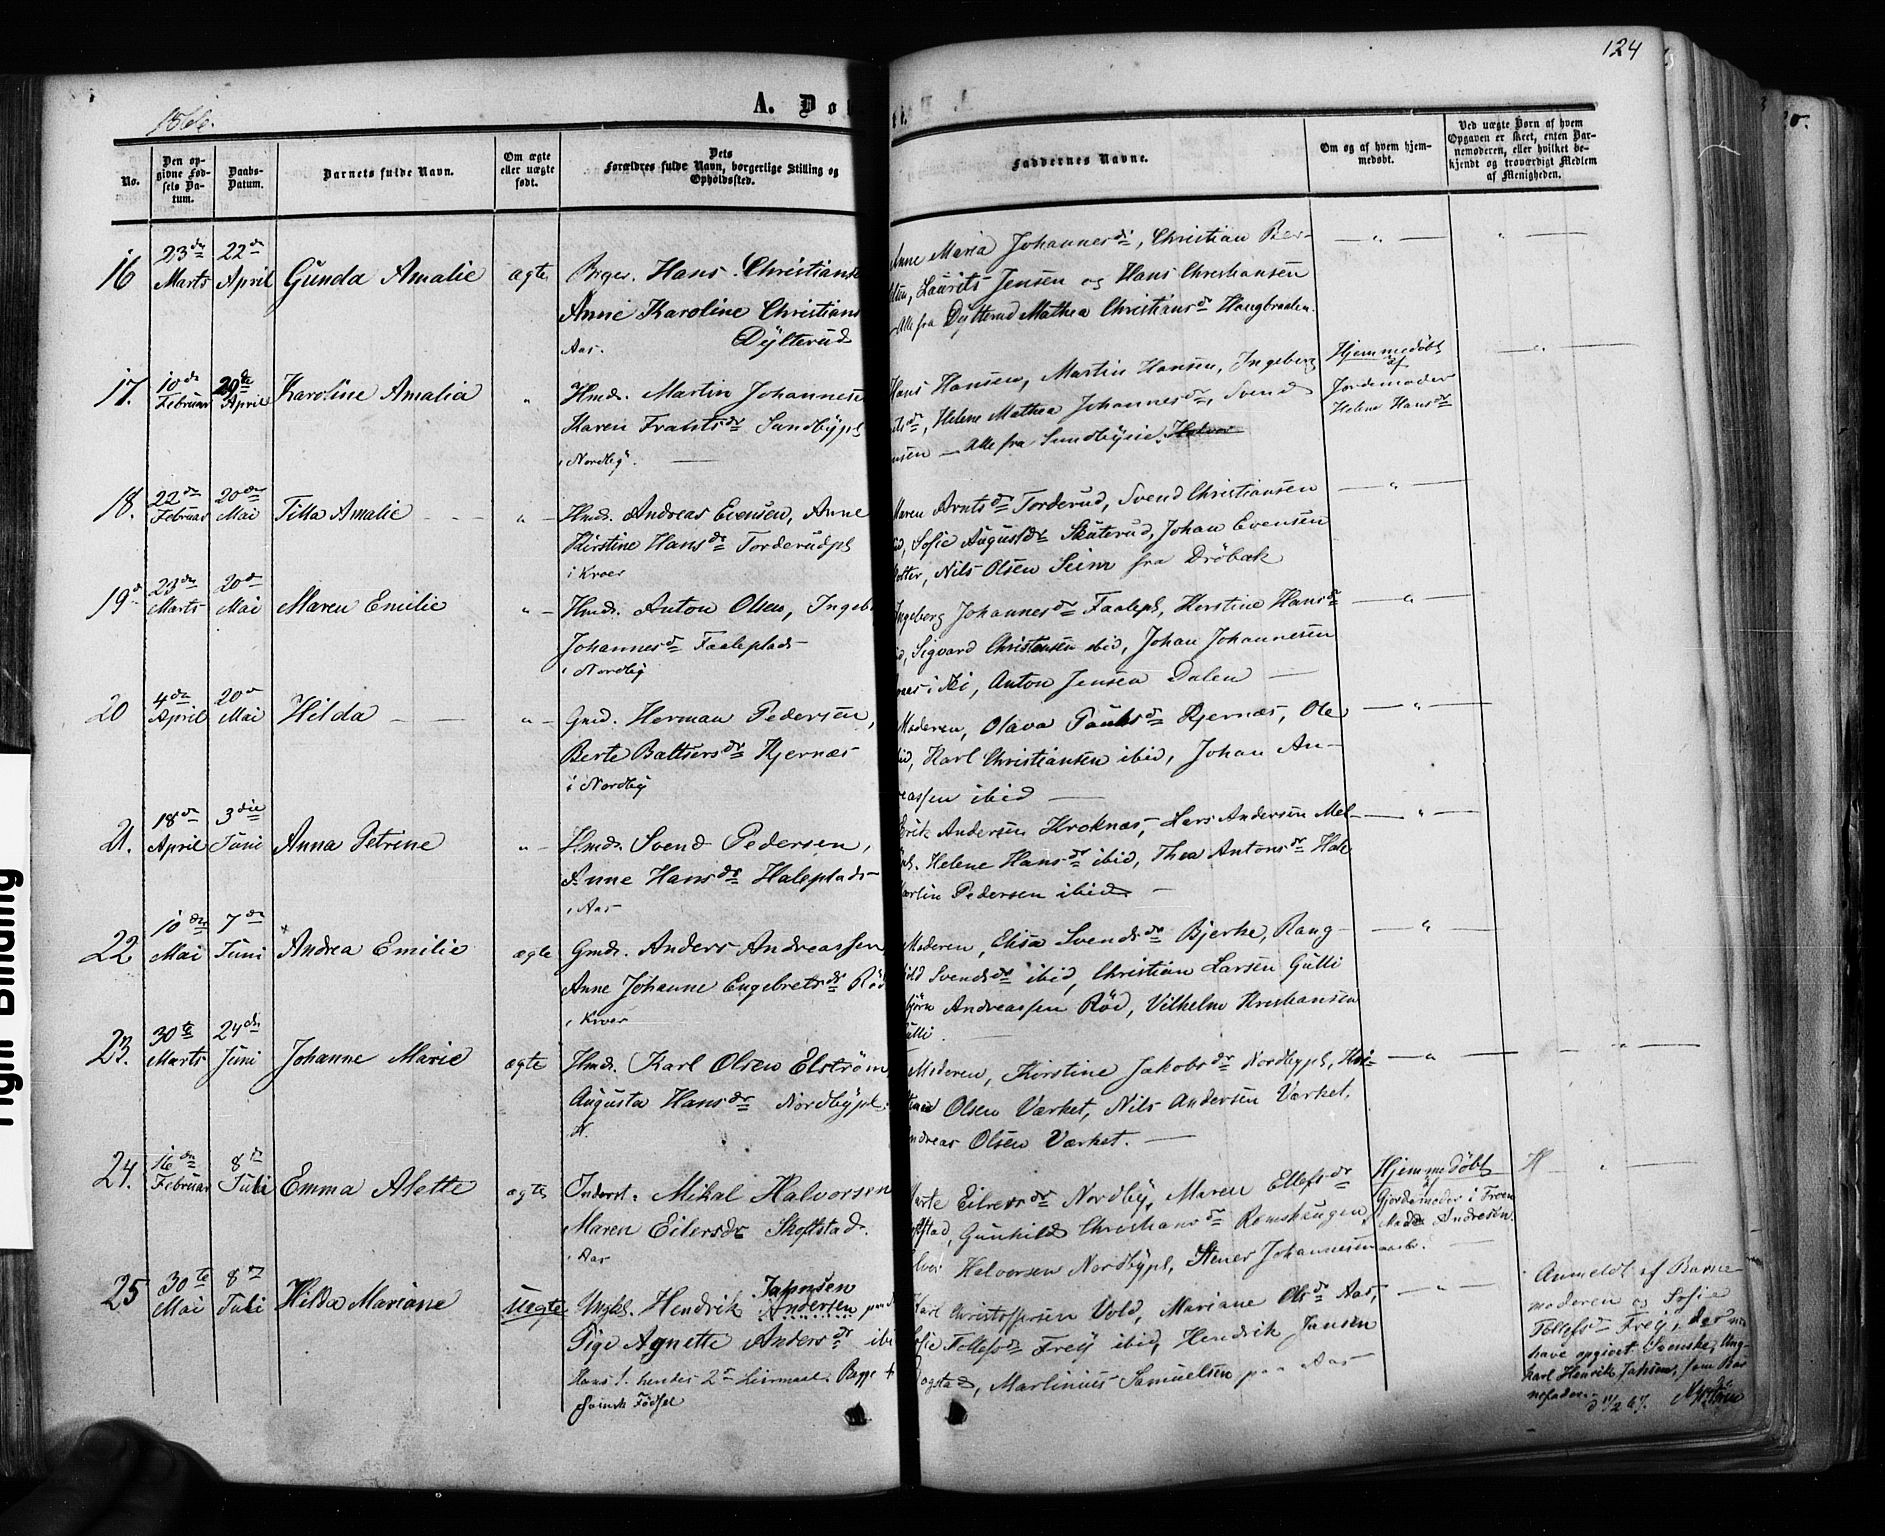 124
1866.
A. Døb
No.
Den opgivne Fødsels Datum.
Daabs-Datum.
Barnets fulde Navn.
Om ægte eller uægte født.
Dets Forældres fulde Navn, borgerlige Stilling og Opholdssted.
Faddernes Navne.
Om og af hvem hjemmedøbt.
Ved uægte Børn af hvem Opgaven er skeet, enten Barnemoderen, eller hvilket bekjendt og troværdigt Medlem af Menigheden.
16 23de Marts 22de April Gunda Amalie ægte
Hans Christianse
Anne Karoline Christians
Dylterud
Aas.
Anne Maria Johannesdr, Christian Ber-
Laurits Jensen og Hans Christiansen
Alle fra Dytterud Mathea Christiansdr Haugbraaten.
17. 10de Februar 20de April Karoline Amalia "
Hmd. Martin Johannesen
Karen Frantsdr Sundbypl
i Nordby.
Hans Hansen, Martin Hansen, Ingeborg
Helene Mathea Johannesdr, Svend
Alle fra Sundbyeie. Halvor
Hjemmedøbt
af
Jordemoder
Helene Hansdr
18. 22de Februar 20de Mai Tilla Amalie "
Hmd. Andreas Evensen, Anne
Kirstine Hansdr Torderudpl
i Kroer
Maren Arntsdr Torderud, Svend Christiansen
Sofie Augustdr Skuterud, Johan Evensen
Nils Olsen Seim fra Drøbak
19 23de Marts 20de Mai Maren Emilie "
Hmd. Anton Olsen, Ingeb
Johannesdr Faaleplads
i Nordby
Ingeborg Johannesdr Faalepl, Kerstine Hansdr
Sigvard Christensen ibid, Johan Johannesen
i Ski, Anton Jensen Dalen
20 4de April 20de Mai Hilda "
Gmd. Herman Pedersen,
Berte Baltsersdr Kjernæs
i Nordby
Moderen, Olava Paulsdr Kjernæs, Ole
Karl Christiansen ibid, Johan An-
reassen ibid
21. 18de April 3die Juni Anna Petrine "
Hmd. Svend Pedersen,
Anne Hansdr Haleplads
i Aas
Erik Andersen Kroknæs, Lars Andersen Mel-
Helene Hansdr ibid, Thea Antonsdr Hale
Martin Pedersen ibid
22 10de Mai 7de Juni Andrea Emilie ægte
Gmd. Anders Andreassen,
Anne Johanne Engebretsdr Rød
i Kroer
Moderen, Elisa Svendsdr Bjerke, Rang-
ild Svendsdr ibid, Christian Larsen Gulli
bjørn Andreassen Rød, Vilhelm Kristiansen
Gulli
23. 30te Marts 24de Juni Johanne Marie ægte
Hmd. Karl Olsen Elstrøm
Augusta Hansdr Nordbypl.
N.
Moderen, Kirstine Jakobsdr Nordbypl, Kri-
Olsen Værket, Nils Andersen Værket,
Andreas Olsen Værket.
24. 16de Februar 8de Juli Emma Alette ægte
Inderst. Mikal Halvorsen
Maren Eilersdr Skoftstad.
i Aas
Marte Eilersdr Nordby, Maren Ellefsdr
Gunhild Christiansdr Romshaugen
Halvorsen Nordbypl, Stener Johannesen
Hjemmedøbt
af
Gjordemoder i Froen
Madm Andresen
25 30te Mai 8de Juli Hilda Mariane uægte
Ungkl. Hendrik Andersen
Jahnsen
Pige Agnette Andersdr ibi
Hans 1. hendes 2de Leiermaal. Begge
Svensk Fødsel
Karl Christoffersen Vold, Mariane Olsdr Aas,
Sofie Tollefsdr Frey ibid, Hendrik Jansen
Martinius Samuelsen paa Aas
Anmeldt af Barne-
moderen og Sofie
Tollefsdr Frey, der
have opgivet Svenske, Ung-
karl Henrik Jahnsen, som Bar-
nefader.
d 11/2 67.